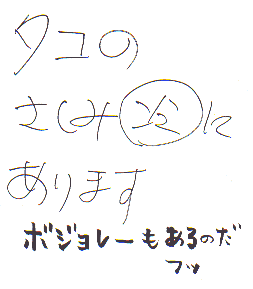 タコの
さしみ冷に
あります
ボジョレーもあるのだ
フッ